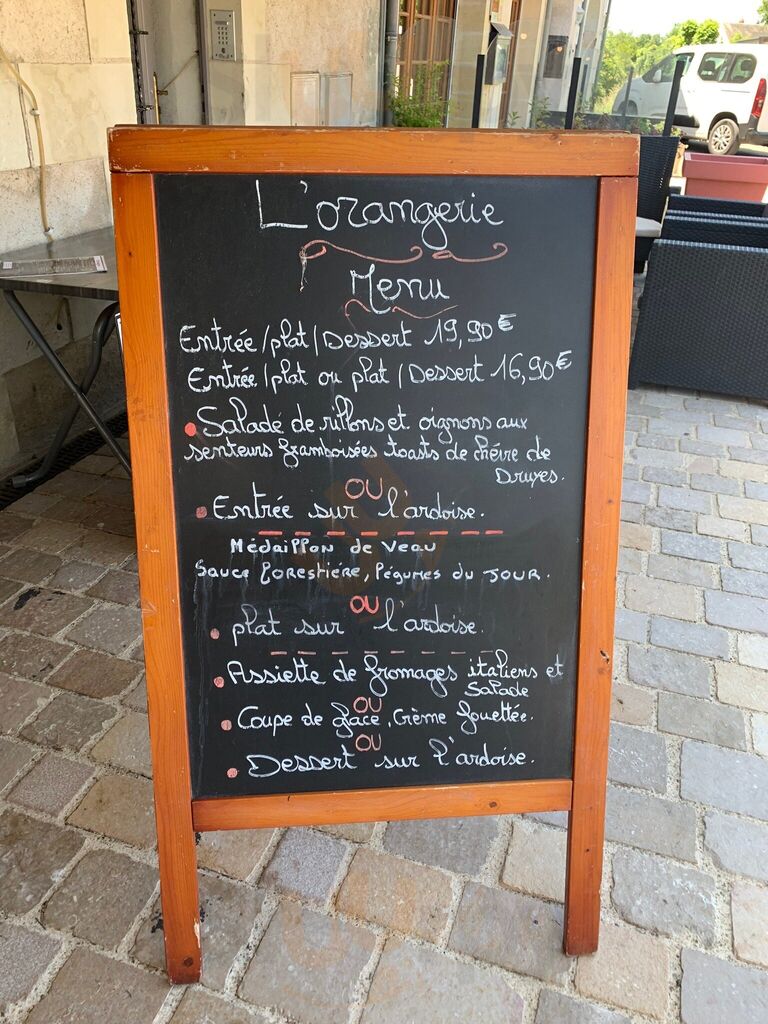 L'orangerie
Menu
Entrée/plat/Dessert 19,90€
Entrée/plat ou plat/Dessert 16,90€
Salade de rillons et oignons aux
senteurs framboisées toasts de chévre de
Druyes.
OU
Entrée sur l'ardoise.
Médaillon de Veau
Sauce forestiére, légumes du jour.
OU
plat sur l'ardoise.
Assiette de fromages italiens et
Salade
OU
Coupe de glace, Crème fouettée.
OU
Dessert sur l'ardoise.